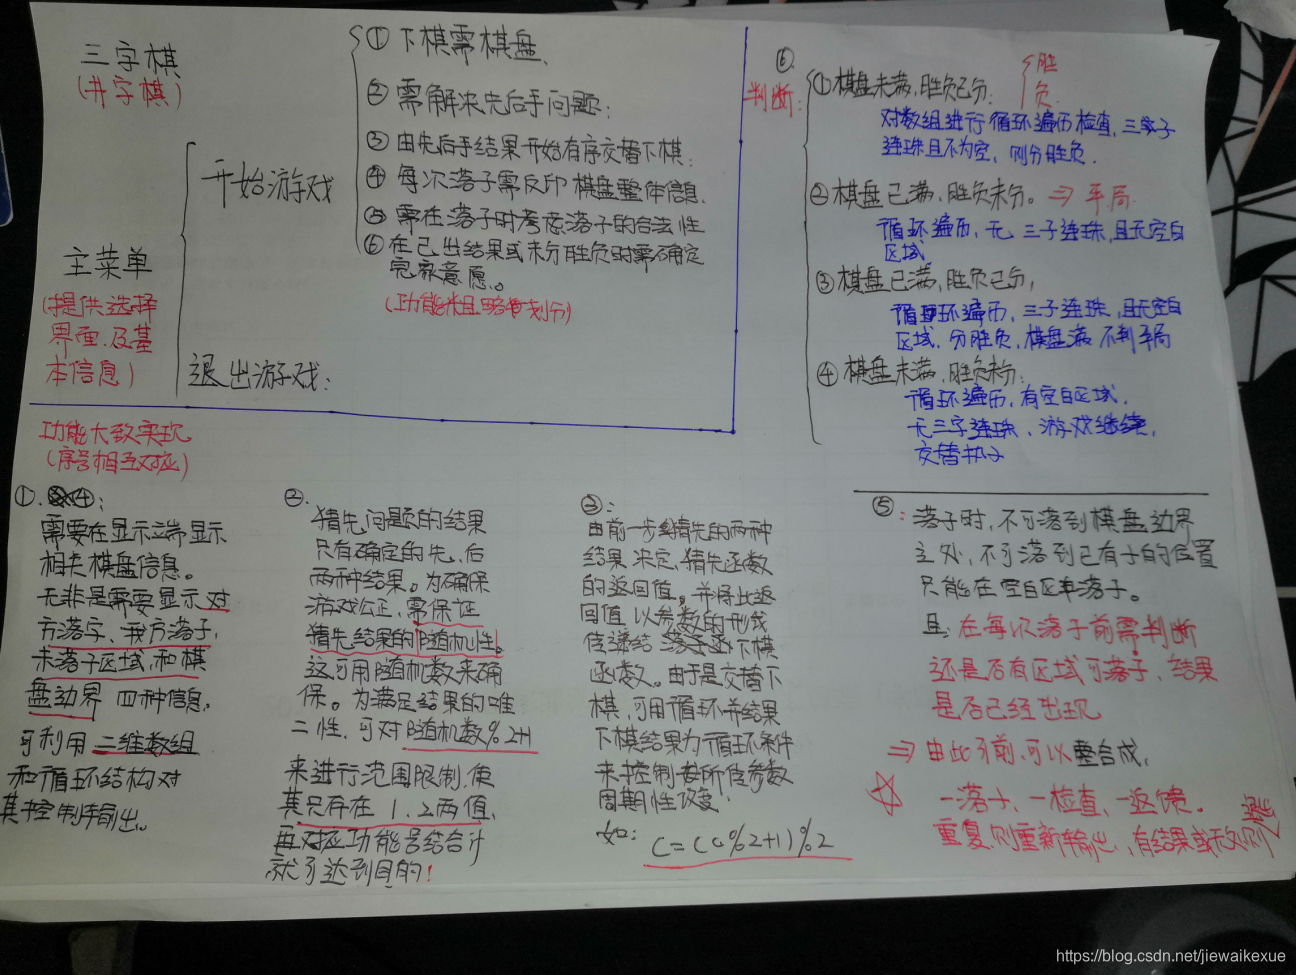 三字棋
(井字棋)
主菜单
(提供选择
界面.及基
本信息)
开始游戏
退出游戏:
① 下棋需棋盘、
② 需解决先后手问题;
③ 由先后手结果开始有序交替下棋;
④ 每次落子需反印棋盘整体信息.
⑤ 需在落子时考虑落子的合法性
⑥ 在已出结果或未分胜负时需确定
玩家意愿。
(功能粗略划分)
⑥
判断:
① 棋盘未满,胜负已分:
胜
负
对数组进行循环遍历检查,三字子
连珠且不为空,则分胜负.
② 棋盘已满,胜负未分。⇒ 平局
循环遍历,无三子连珠,且无空白
区域
③ 棋盘已满,胜负已分,
循环遍历,三子连珠,且无空白
区域.分胜负,棋盘满不判平局
④ 棋盘未满,胜负未分:
循环遍历,有空白区域.
无三字连珠.游戏继续,
交替执子
功能大致实现
(序号相互对应)
①.④:
需要在显示端显示
相关棋盘信息。
无非是需要显示对
方落字、我方落子,
未落子区域,和棋
盘边界 四种信息.
可利用二维数组
和循环结构对
其控制输出。
②.
猜先问题的结果
只有确定的先、后
两种结果。为确保
游戏公正,需保证
猜先结果的随机性。
这可用随机数来确
保。为满足结果的唯
二性,可对随机数%2+1
来进行范围限制,使
其只存在1、2两值,
再对应功能号结合计
就可达到目的!
③:
由前一步猜先的两种
结果决定,猜先函数
的返回值。并将此返
回值以参数的形式
传递给下棋
函数。由于是交替下
棋,可用循环并结果
下棋结果为循环条件
来控制按所传参数
周期性改变.
如:
C=((c%2+1)%2
⑤:落子时,不可落到棋盘边界
之处,不可落到已有子的位置
只能在空白区率落子。
且:在每次落子前需判断
还是否有区域可落子,结果
是否已经出现
⇒ 由此可前.可以整合成,
一落子、一检查、一返馈。
重复则重新输出,有结果或无处则